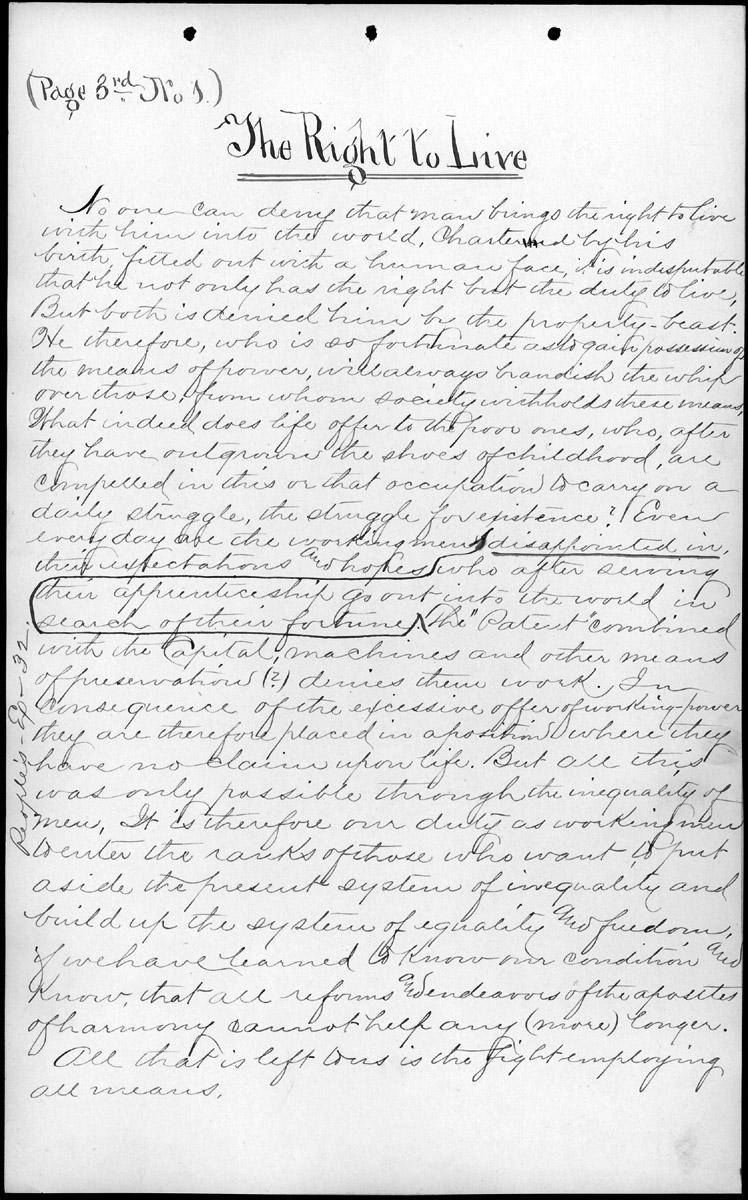 (Page 3rd. No 1.)
The Right to Live
No one can deny that man brings the right to live
with him into the world, Chartered by his
birth, fitted out with a human face, it is indisputable
that he not only has the right but the duty to live,
But both is denied him by the property-beast.
He therefore, who is so fortunate as to gain possession of
the means of power, will always brandish the whip
over those, from whom society withholds these means,
What indeed does life offer to the poor ones, who, after
they have outgrown the shoes of childhood, are
compelled in this or that occupation to carry on a
daily struggle, the struggle for existence? Even
every day are the workingmen disappointed in,
their expectations and hopes who after serving
their apprenticeship go out into the world in
search of their fortune, The "Patent" combined
with the Capital, machines and other means
of preservation (?) denies them work. In
consequence of the excessive offer of working-power
they are therefore placed in a position where they
have no claim upon life. But all this
was only possible through the inequality of
men, It is therefore our duty as workingmen
to enter the ranks of those who want to put
aside the present system of inequality and
build up the system of equality and freedom,
if we have learned to know our condition and
know, that all reforms and endeavors of the apostles
of harmony cannot help any (more) longer.
All that is left to us is the fight employing
all means.
People's-Ex-32.